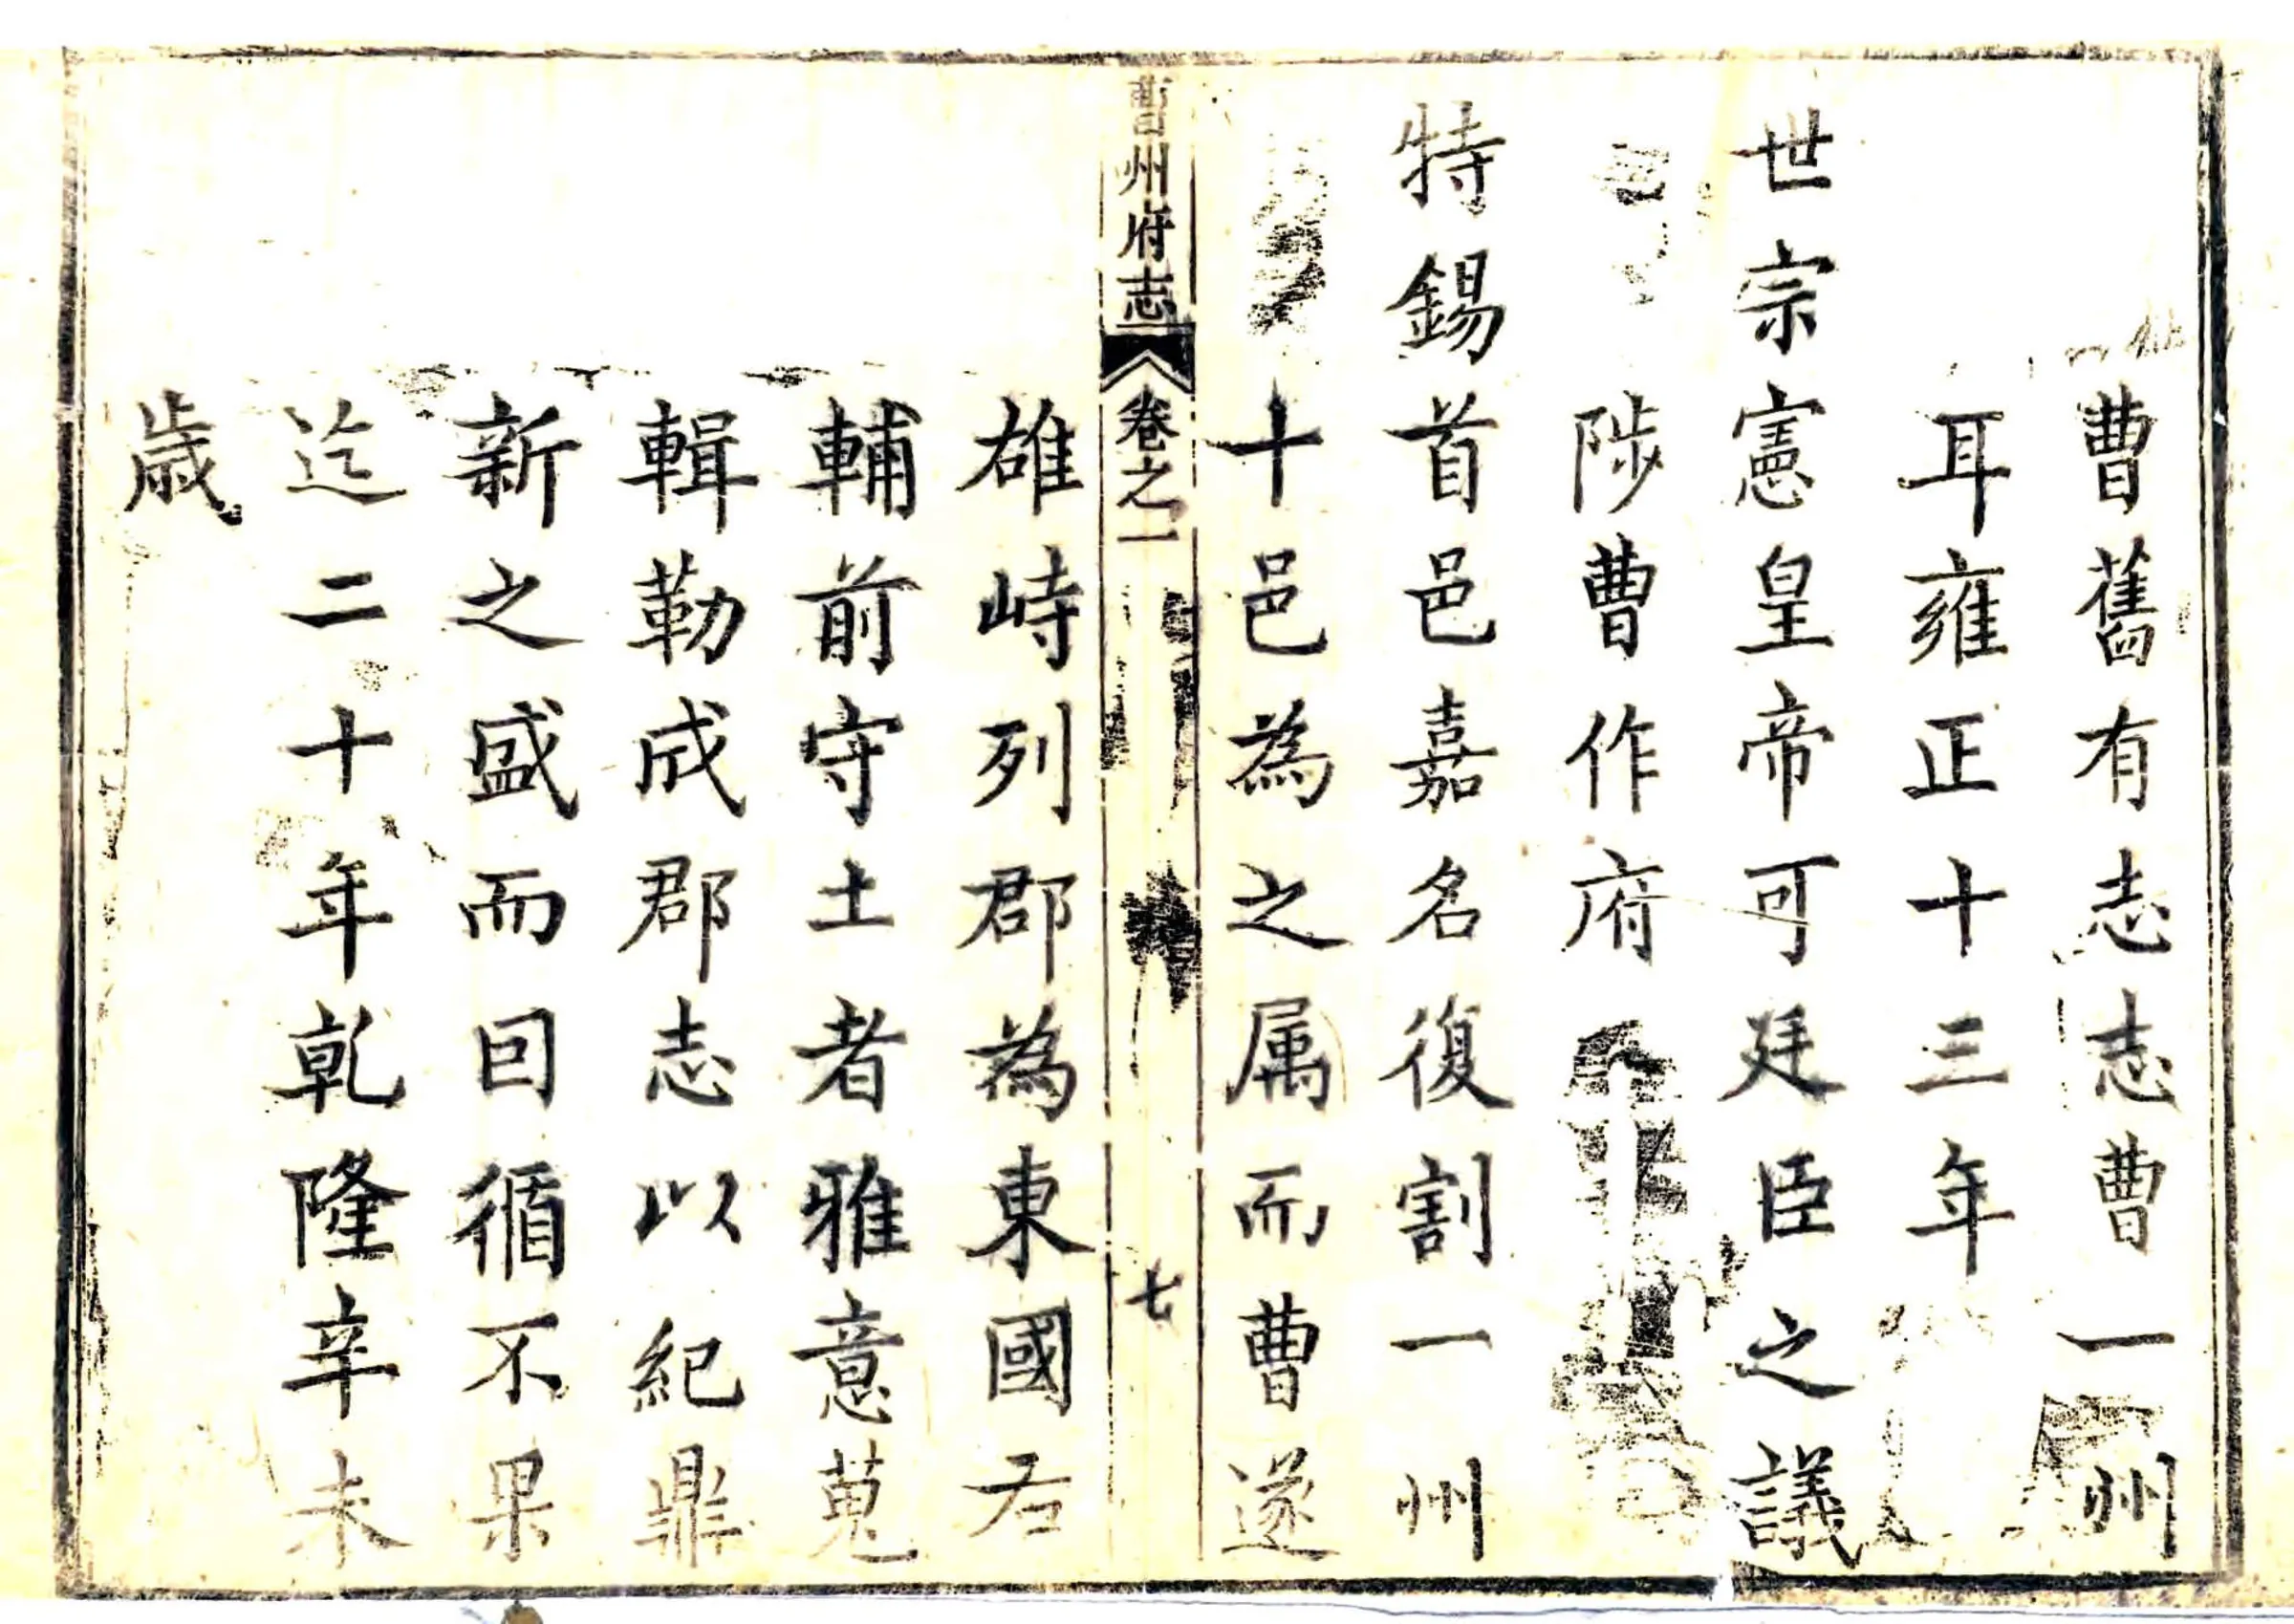 曹舊有志志曹一州
耳雍正十三年
世宗憲皇帝可廷臣之議
陟曹作府
特錫首邑嘉名復割一州
十邑為之属而曹遂
曹州府志 卷之一 七
雄峙列郡為東國右
輔前守土者雅意蒐
輯勒成郡志以紀鼎
新之盛而囙循不果
迄二十年乾隆辛未
歳